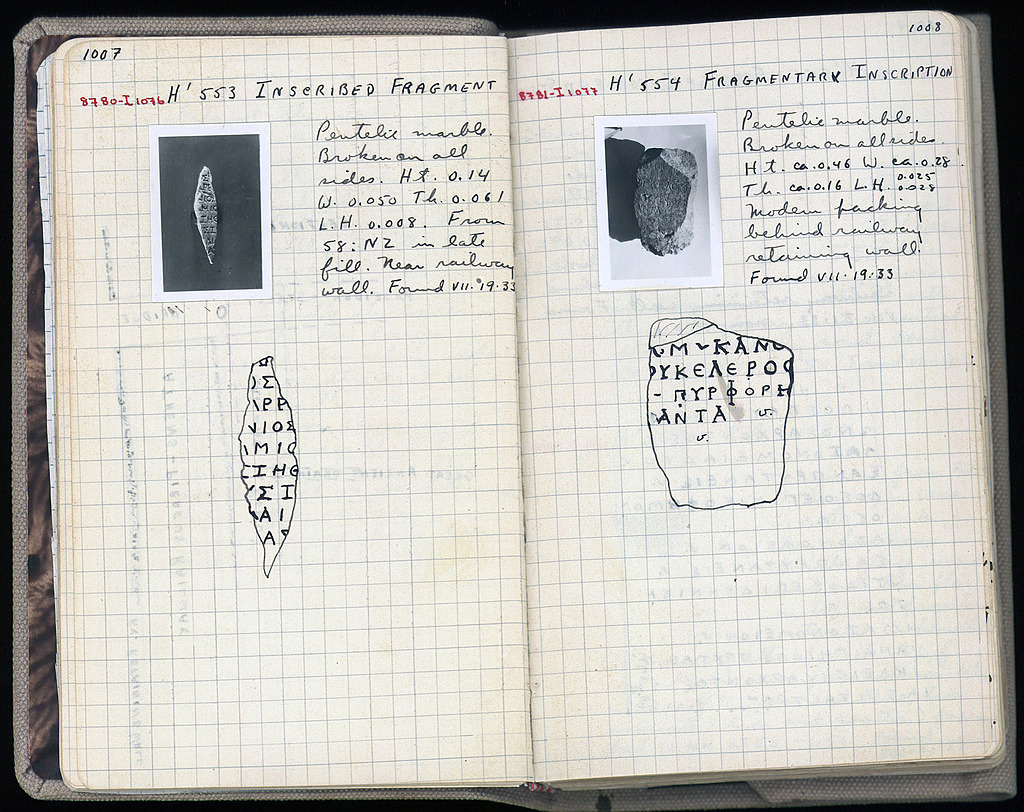 1007
8780-I1076 H' 553 INSCRIBED FRAGMENT
Pentelic marble.
Broken on all
sides. Ht. 0.14
W. 0.050 Th. 0.061
L.H. 0.008. From
58:NZ in late
fill. Near railway
wall. Found VII.19.33
Σ
ΡΡ
ΙΟΣ
ΜΙ
ΙΗ
ΣΙ
ΑΙ
Α
1008
8781-I1077 H' 554 FRAGMENTARY INSCRIPTION
Pentelic marble.
Broken on all sides.
Ht. ca. 0.46 W. ca. 0.28
Th. ca. 0.16 L.H. 0.025
0.028
Modern packing
behind railway
retaining wall.
Found VII.19.33
Μ ΚΑΝ
ΥΚΕΛΕΡΟ
- ΠΥΡΦΟΡΗ
ΑΝΤΑ v.
v.